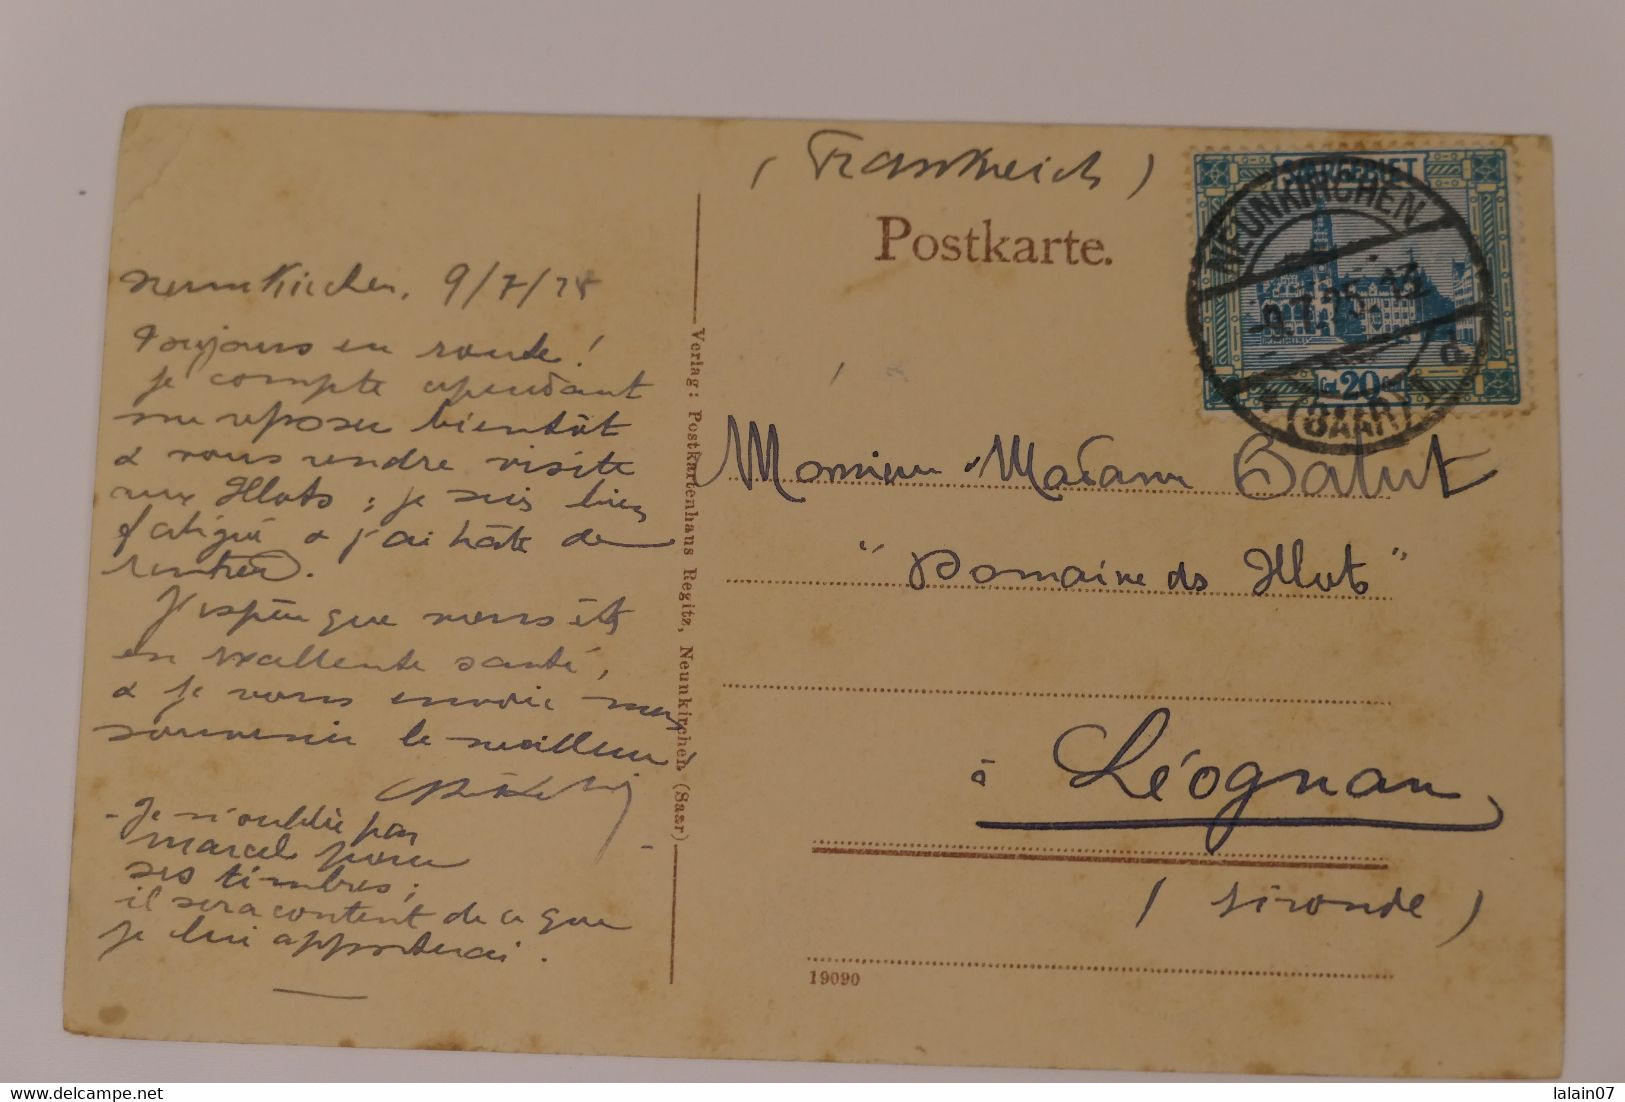 Neunkirchen, 9/7/25
Toujours en route !
je compte cependant
me reposer bientôt
& vous rendre visite
aux Illots ; je suis bien
fatigué & j'ai hâte de
rentrer.
J'espère que vous êtes
en excellente santé,
& je vous envoie mon
souvenir le meilleur
- Je n'oublie pas
Marcel pour
ses timbres ;
il sera content de ce que
je lui apporterai.
Verlag: Postkartenhaus Regitz, Neunkirchen (Saar)
(Frankreich)
Postkarte.
SAARGEBIET
20
NEUNKIRCHEN
-9.7.25. 
(SAAR)
d
Monsieur Madame Balut
"Domaine des Illots"
à Léognan
(Gironde)
19090
lalain07